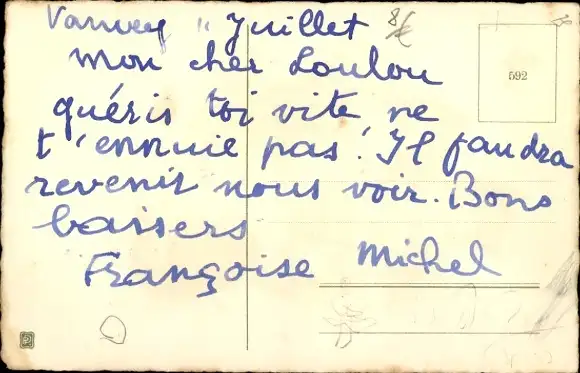 Vanvey " Juillet
Mon cher Loulou
guéris toi vite ne
t'ennuie pas! Il faudra
revenir nous voir. Bons
baisers
Françoise Michel
592